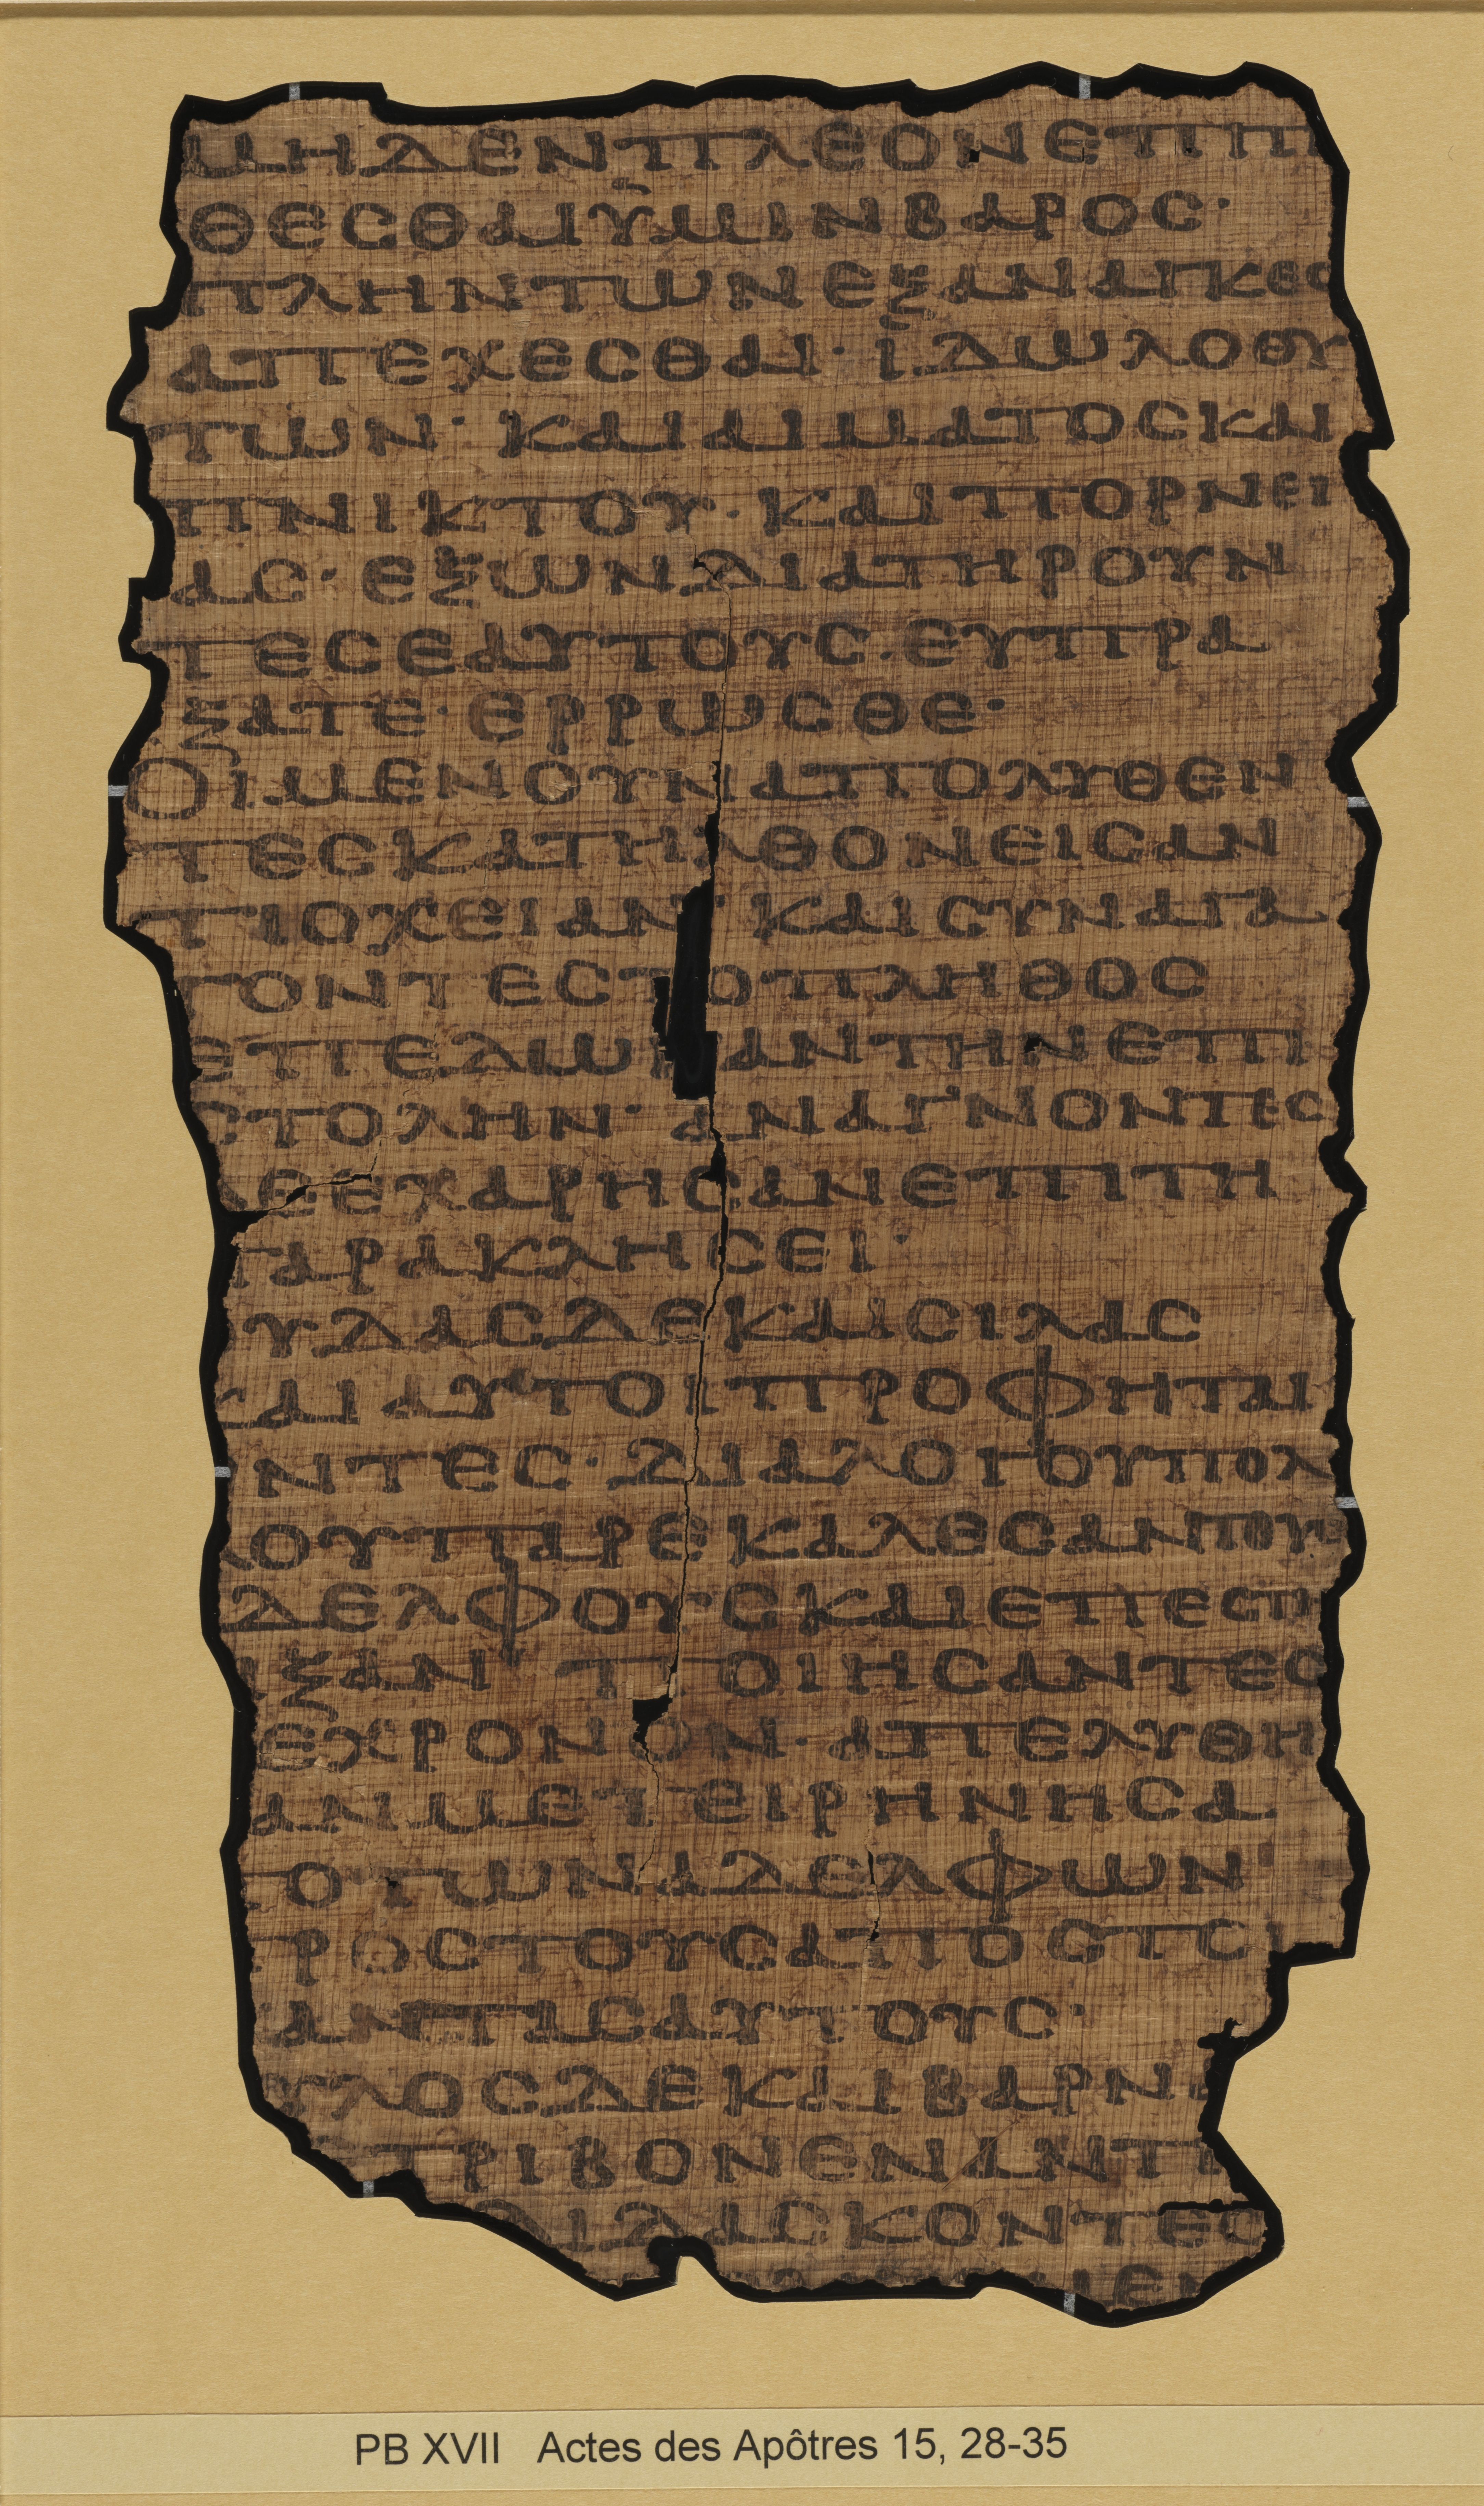 ΜΗΔΕΝΠΛΕΟΝΕΠΙΤΙ
ΘΕΣΘΑΙΫΜΙΝΒΑΡΟΣ·
ΠΛΗΝΤΩΝΕΞΑΝΑΓΚΕΣ
ΑΠΕΧΕΣΘΑΙ·ΪΔΩΛΟΘΥ
ΤΩΝ·ΚΑΙΑΙΜΑΤΟΣΚΑΙ
ΠΝΙΚΤΟΥ·ΚΑΙΠΟΡΝΕΙ
ΑΣ·ΕΞΩΝΔΙΑΤΗΡΟΥΝ
ΤΕΣΕΑΥΤΟΥΣ·ΕΥΠΡΑ
ΞΑΤΕ·ΕΡΡΩΣΘΕ·
ΟΙΜΕΝΟΥΝΑΠΟΛΥΘΕΝ
ΤΕΣΚΑΤΗΛΘΟΝΕΙΣΑΝ
ΤΙΟΧΕΙΑΝ·ΚΑΙΣΥΝΑΓΑ
ΓΟΝΤΕΣΤΟΠΛΗΘΟΣ
ΕΠΕΔΩΚΑΝΤΗΝΕΠΙ
ΣΤΟΛΗΝ·ΑΝΑΓΝΟΝΤΕΣ
ΔΕΕΧΑΡΗΣΑΝΕΠΙΤΗ
ΠΑΡΑΚΛΗΣΕΙ·
ΥΔΑΣΔΕΚΑΙΣΙΛΑΣ
ΚΑΙΑΥΤΟΙΠΡΟΦΗΤΑΙ
ΝΤΕΣ·ΔΙΑΛΟΓΟΥΠΟΛ
ΛΟΥΠΑΡΕΚΑΛΕΣΑΝΤΟΥΣ
ΔΕΛΦΟΥΣΚΑΙΕΠΕΣΤΗ
ΙΞΑΝΠΟΙΗΣΑΝΤΕΣ
ΕΧΡΟΝΟΝ·ΑΠΕΛΥΘΗ
ΑΝΜΕΤΕΙΡΗΝΗΣΑ
ΠΟΤΩΝΑΔΕΛΦΩΝ
ΠΡΟΣΤΟΥΣΑΠΟΣΤΟ
ΑΝΤΑΣΑΥΤΟΥΣ·
ΥΛΟΣΔΕΚΑΙΒΑΡΝΑ
ΤΡΙΒΟΝΕΝΑΝΤΙ
ΔΙΔΑΣΚΟΝΤΕΣ
PB XVII Actes des Apôtres 15, 28-35